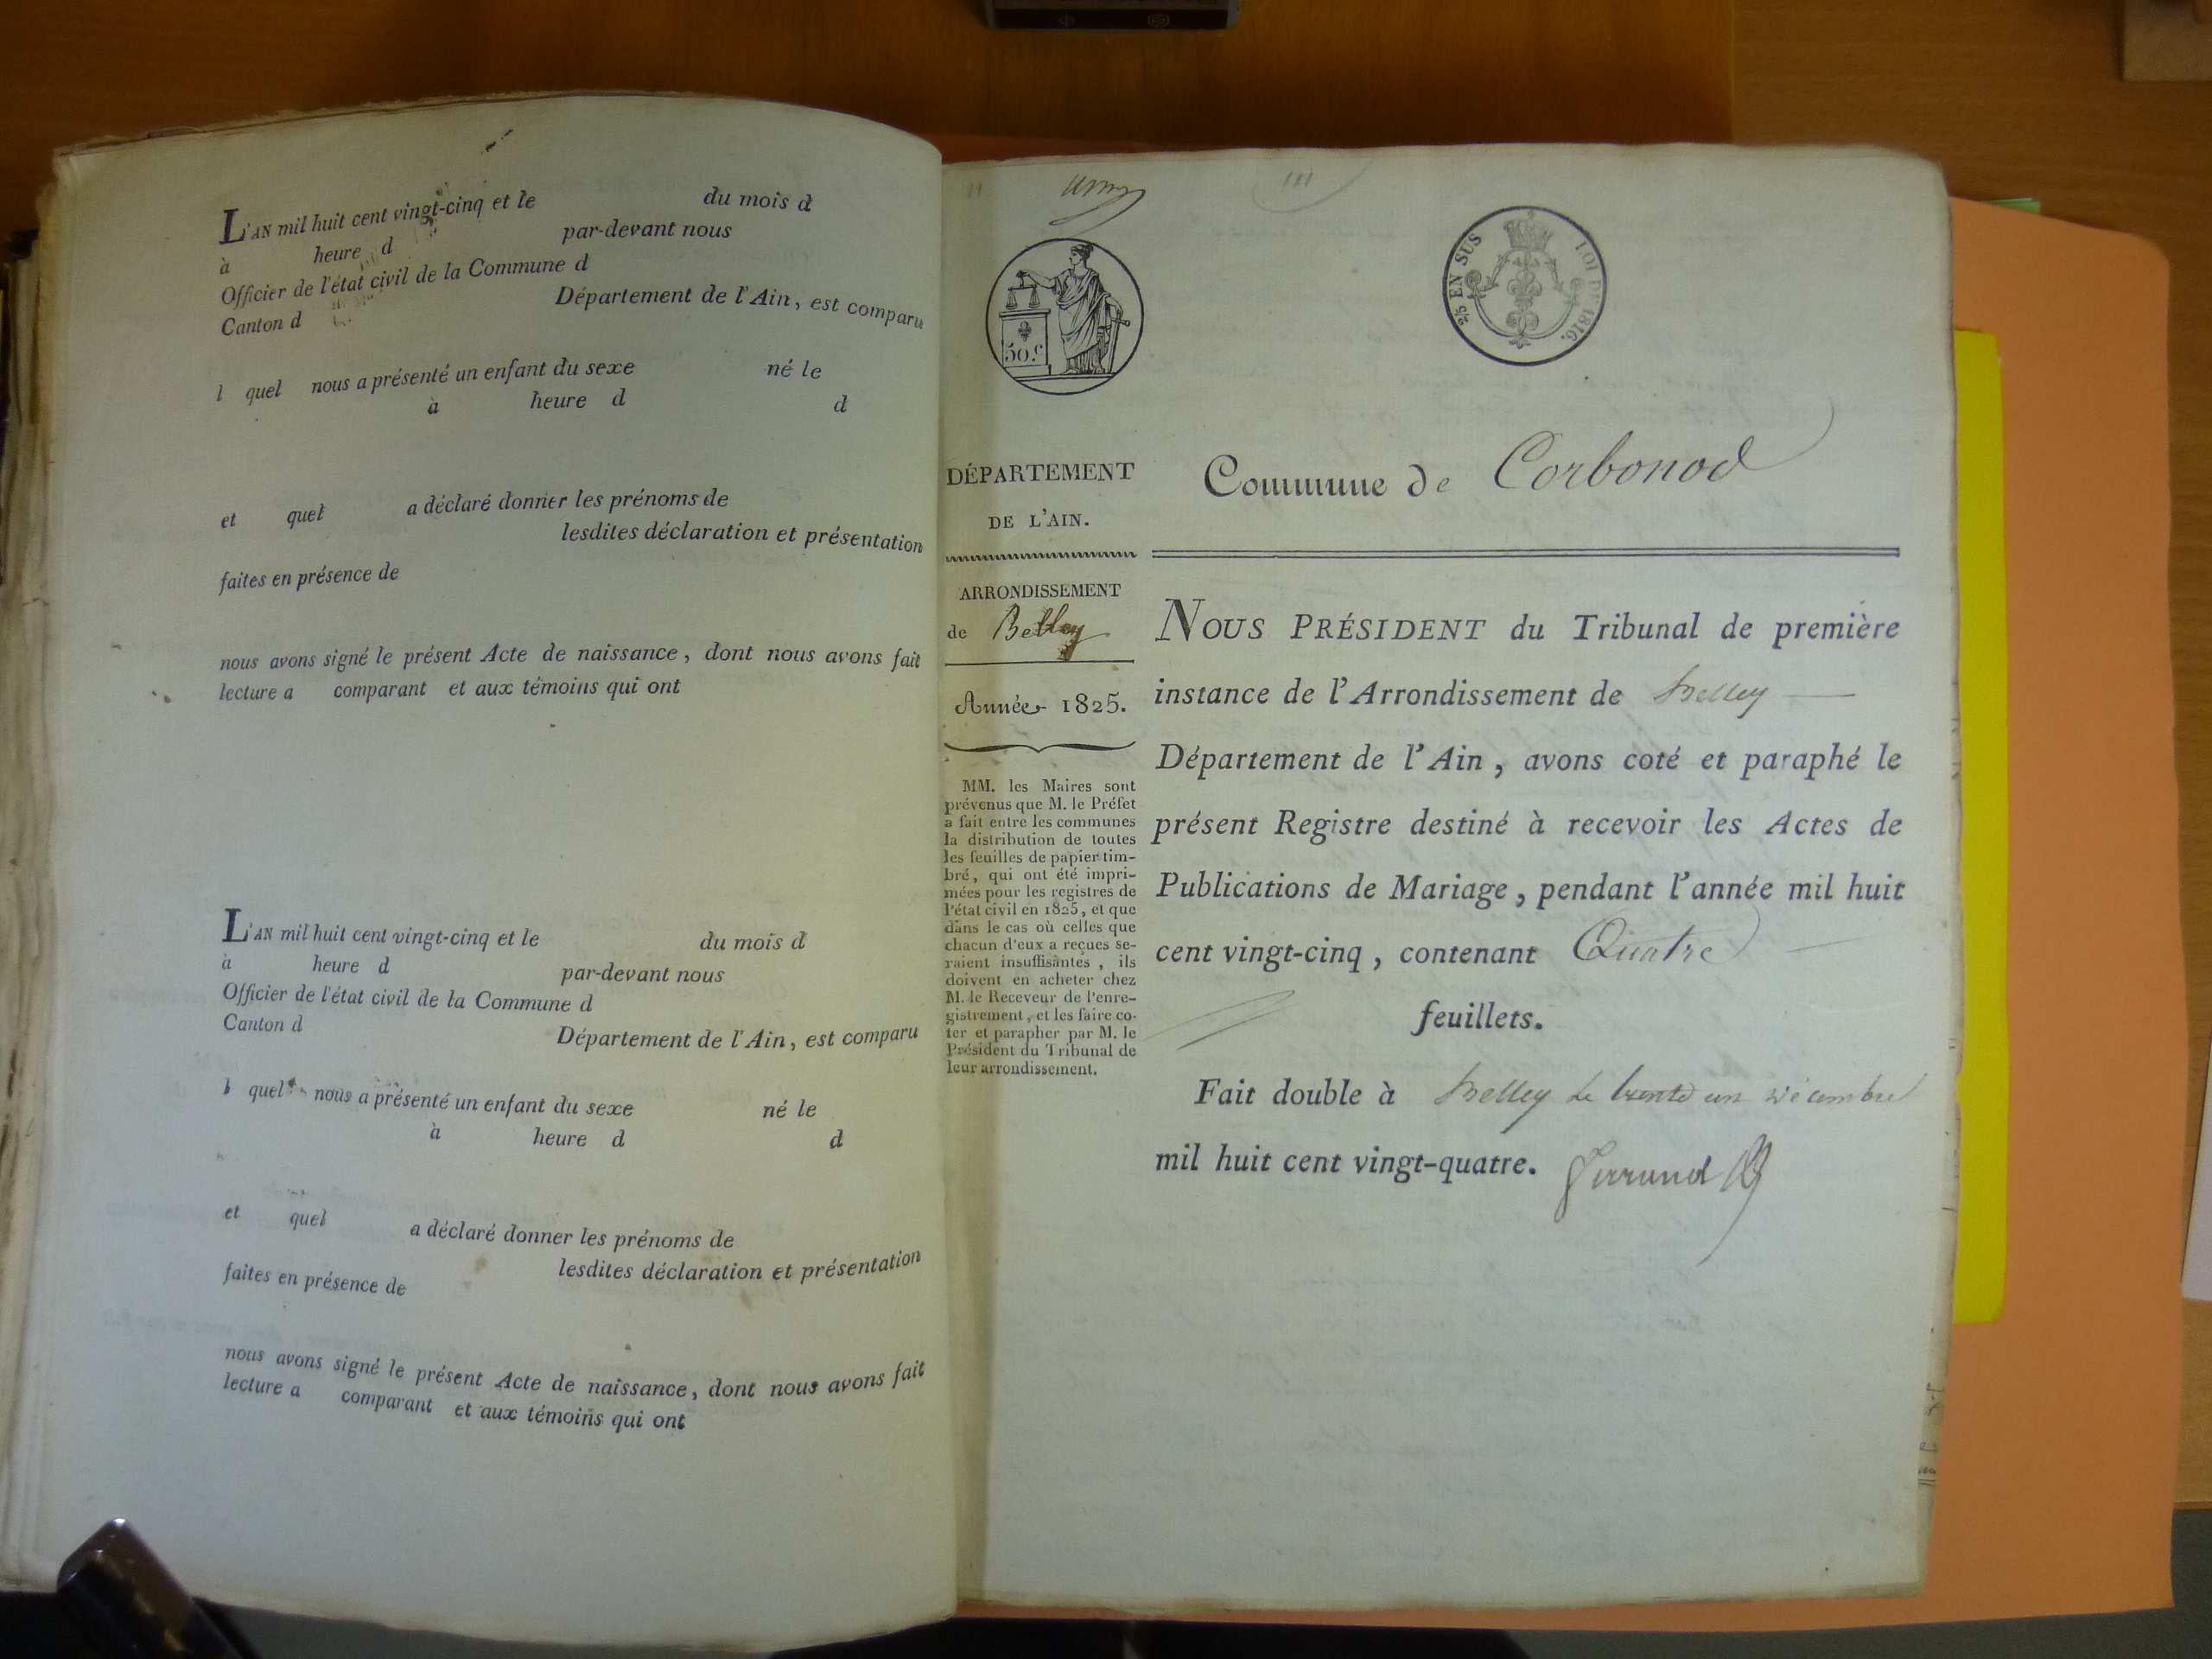 L'AN mil huit cent vingt-cinq et le du mois d
à heure d par-devant nous
Officier de l'état civil de la Commune d
Canton d Département de l'Ain, est comparu
l quel nous a présenté un enfant du sexe né le
à heure d d
et quel a déclaré donner les prénoms de
lesdites déclaration et présentation
faites en présence de
nous avons signé le présent Acte de naissance, dont nous avons fait
lecture a comparant et aux témoins qui ont
L'AN mil huit cent vingt-cinq et le du mois d
à heure d par-devant nous
Officier de l'état civil de la Commune d
Canton d Département de l'Ain, est comparu
l quel nous a présenté un enfant du sexe né le
à heure d d
et quel a déclaré donner les prénoms de
lesdites déclaration et présentation
faites en présence de
nous avons signé le présent Acte de naissance, dont nous avons fait
lecture a comparant et aux témoins qui ont
50.c
2/5 EN SUS LOI DE 1816.
DÉPARTEMENT
DE L'AIN.
ARRONDISSEMENT
de Belley
Année 1825.
MM. les Maires sont
prévenus que M. le Préfet
a fait entre les communes
la distribution de toutes
les feuilles de papier tim-
bré, qui ont été impri-
mées pour les registres de
l'état civil en 1825, et que
dans le cas où celles que
chacun d'eux a reçues se-
raient insuffisantes, ils
doivent en acheter chez
M. le Receveur de l'enre-
gistrement, et les faire co-
ter et parapher par M. le
Président du Tribunal de
leur arrondissement.
Commune de Corbonod
NOUS PRÉSIDENT du Tribunal de première
instance de l'Arrondissement de Belley
Département de l'Ain, avons coté et paraphé le
présent Registre destiné à recevoir les Actes de
Publications de Mariage, pendant l'année mil huit
cent vingt-cinq, contenant Quatre
feuillets.
Fait double à Belley le trente un décembre
mil huit cent vingt-quatre.